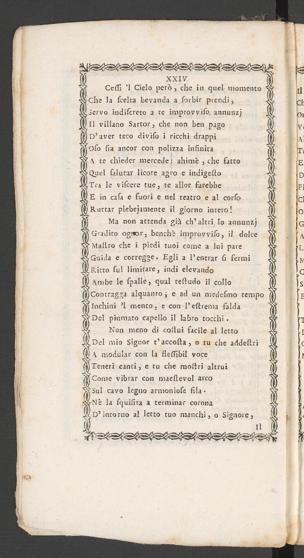 XXIV
Cessi 'l Cielo però, che in quel momento
Che la scelta bevanda a sorbir prendi,
Servo indiscreto a te improvviso annunzj
Il villano Sartor, che non ben pago
D'aver teco diviso i ricchi drappi
Oso sia ancor con polizza infinita
A te chieder mercede: ahimè, che fatto
Quel salutar licore agro e indigesto
Tra le viscere tue, te allor farebbe
E in casa e fuori e nel teatro e al corso
Ruttar plebejamente il giorno intero!
Ma non attenda già ch'altri lo annunzj
Gradito ognor, benchè improvviso, il dolce
Mastro che i piedi tuoi come a lui pare
Guida e corregge. Egli a l'entrar si fermi
Ritto sul limitare, indi elevando
Ambe le spalle, qual testudo il collo
Contragga alquanto, e ad un medesmo tempo
Inchini 'l mento, e con l'estrema falda
Del piumato capello il labro tocchi.
Non meno di costui facile al letto
Del mio Signor t'accosta, o tu che addestri
A modular con la flessibil voce
Teneri canti, e tu che mostri altrui
Come vibrar con maestevol arco
Sul cavo legno armoniose fila.
Nè la squisita a terminar corona
D'intorno al letto tuo manchi, o Signore,
Il